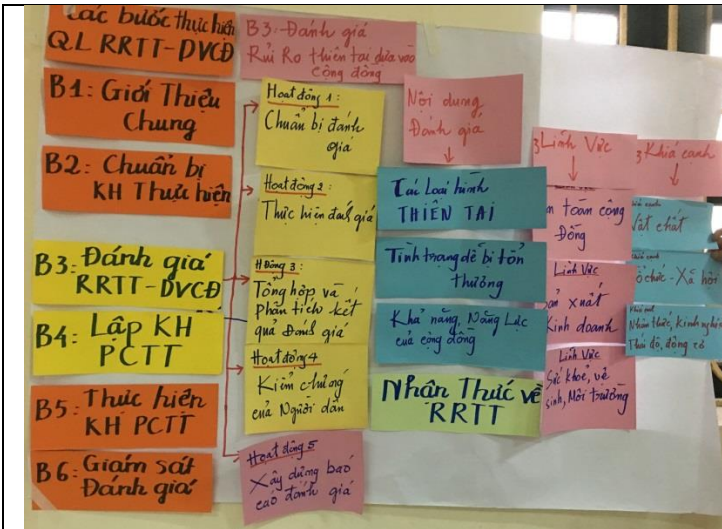 Các bước thực hiện
QL RRTT-DVCĐ
B1: Giới Thiệu
Chung
B2: Chuẩn bị
KH Thực hiện
B3: Đánh giá
RRTT-DVCĐ
B4: Lập KH
PCTT
B5: Thực hiện
KH PCTT
B6: Giám sát
Đánh giá
B3: Đánh giá
Rủi Ro thiên tai dựa vào
cộng đồng
Hoạt động 1:
Chuẩn bị đánh
giá
Hoạt động 2:
Thực hiện đánh giá
HĐộng 3:
Tổng hợp và
phân tích kết
quả Đánh giá
Hoạt động 4
Kiểm chứng
của Người dân
Hoạt động 5
Xây dựng báo
cáo đánh giá
Nội dung
Đánh giá
Các Loại hình
THIÊN TAI
Tình trạng dễ bị tổn
thương
Khả năng, Năng Lực
của cộng đồng
Nhận Thức về
RRTT
3 Lĩnh Vực
toàn cộng
Đồng
Lĩnh Vực
xuất
Kinh doanh
Lĩnh Vực
Sức khoẻ, vệ
sinh, Môi trường
3 Khía cạnh
Vật chất
chức - Xã hội
Nhận thức, kinh nghiệm
Thái độ, động cơ